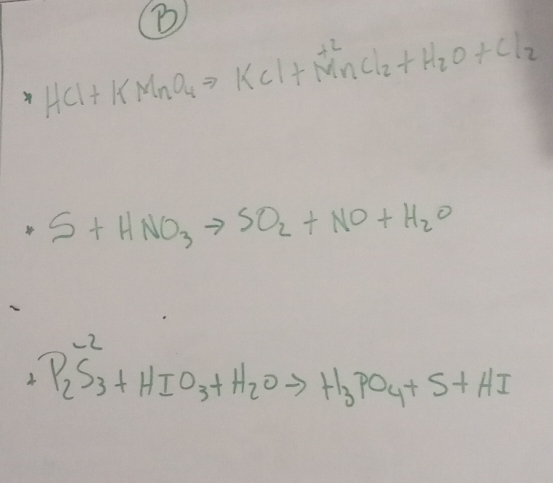 B
* HCl + KMnO₄ ⇒ KCl + Mn⁺²Cl₂ + H₂O + Cl₂
* S + HNO₃ → SO₂ + NO + H₂O
* P₂S₃⁻² + HIO₃ + H₂O → H₃PO₄ + S + HI